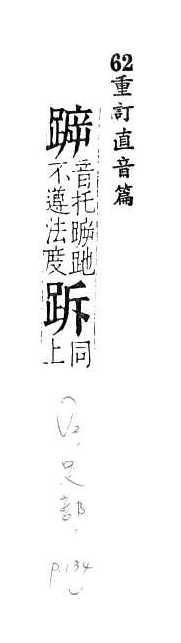 62重訂直音篇
音托
不遵法度
跅
同
上
足部.
p.134